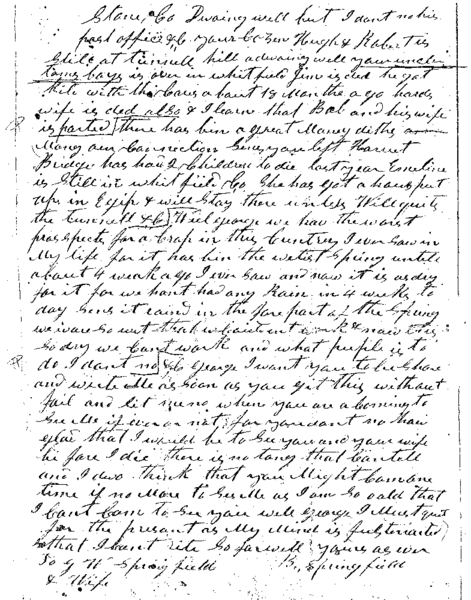 Stone, Co Dwaing well but I dont no his
post office &C. your Cozen Hugh & Robert is
Still at tunnell hill adwaing well your uncle
toms boys is over in whitfield Jim is ded he got
kild with the Cars about 18 Monthe ago hards
wife is ded also & I learn that Bob and his wife
is parted there has bin a great Maney diths
Mong our Connection Sens you left Harriet
Bridges has had 2 Children to die last year Emeline
is Still in whitfield Co. She has got a hous put
up in Egip & will Stay there unless Will quits
the tunnell &C Well george we hav the worst
prosspects for a Crap in this Cuntrey I ever Saw in
My life for it has bin the wetest Spring until
about 4 weeak ago I ever Saw and now it is as dry
for it for we hant had any Rain in 4 weeks to
day Sens it raind in the fore part of the Spring
we ware So wet that we Couldent work & now its
So dry we Cant work and what peeple is to
do I dont no &C George I want you to be Shore
and write Me as Soon as you git this without
fail and let me no when you are a Coming to
See Me if ever or not, for you dont no how
glad that I would be to See you and your wife
be fore I die there is no tong that Can tell
and I dwo think that you Might Com one
time if no More to See Me as I am So oald that
I Cant Com to See you well George I Must quit
for the present as My Mind is
So that I Cant rite So farwell yours as ever
To G W Springfield B., Springfield
& Wife